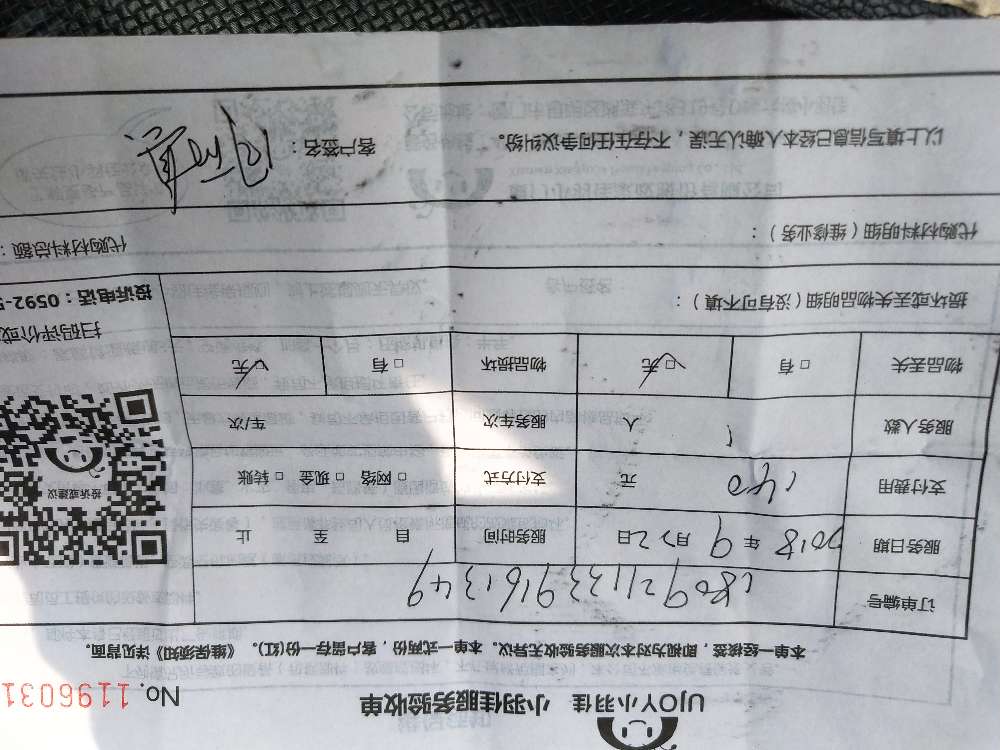 UJOY小羽佳 小羽佳服务验收单
No. 1196031
本单一经核签，即视为对本次服务验收无异议。本单一式两份，客户留存一份(红)。《维保须知》详见背面。
订单编号 1809211339161349
服务日期 2018年9月22日 服务时间 自 至 止
支付费用 140 元 支付方式 □ 网络 □ 现金 □ 转账
服务人数 1 人 服务车次 车/次
物品丢失 □ 有 ☑ 无 物品损坏 □ 有 ☑ 无
投诉或建议
扫码评价或
投诉电话：0592-5
损坏或丢失物品明细（没有可不填）：
代购材料明细（维修业务）：
代购材料总额：
以上填写信息已经本人确认无误，不存在任何争议纠纷。 客户签名：